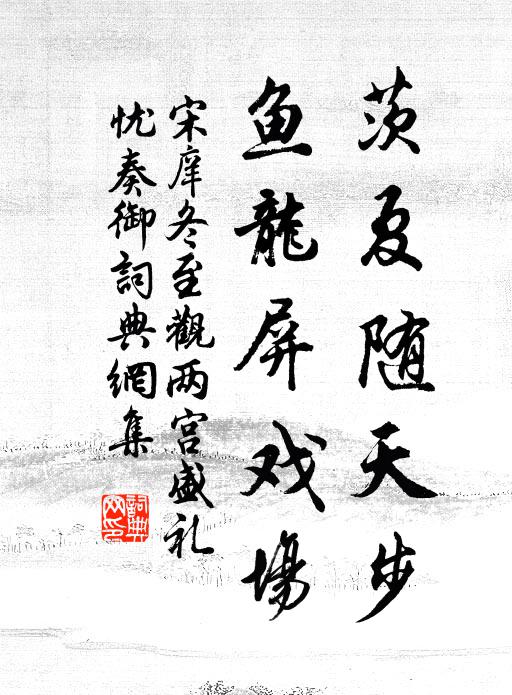 茨夏随天步
鱼龍屏戏場
宋庠冬至觀两宫盛礼
忧奏御詞典網集
詞典網印